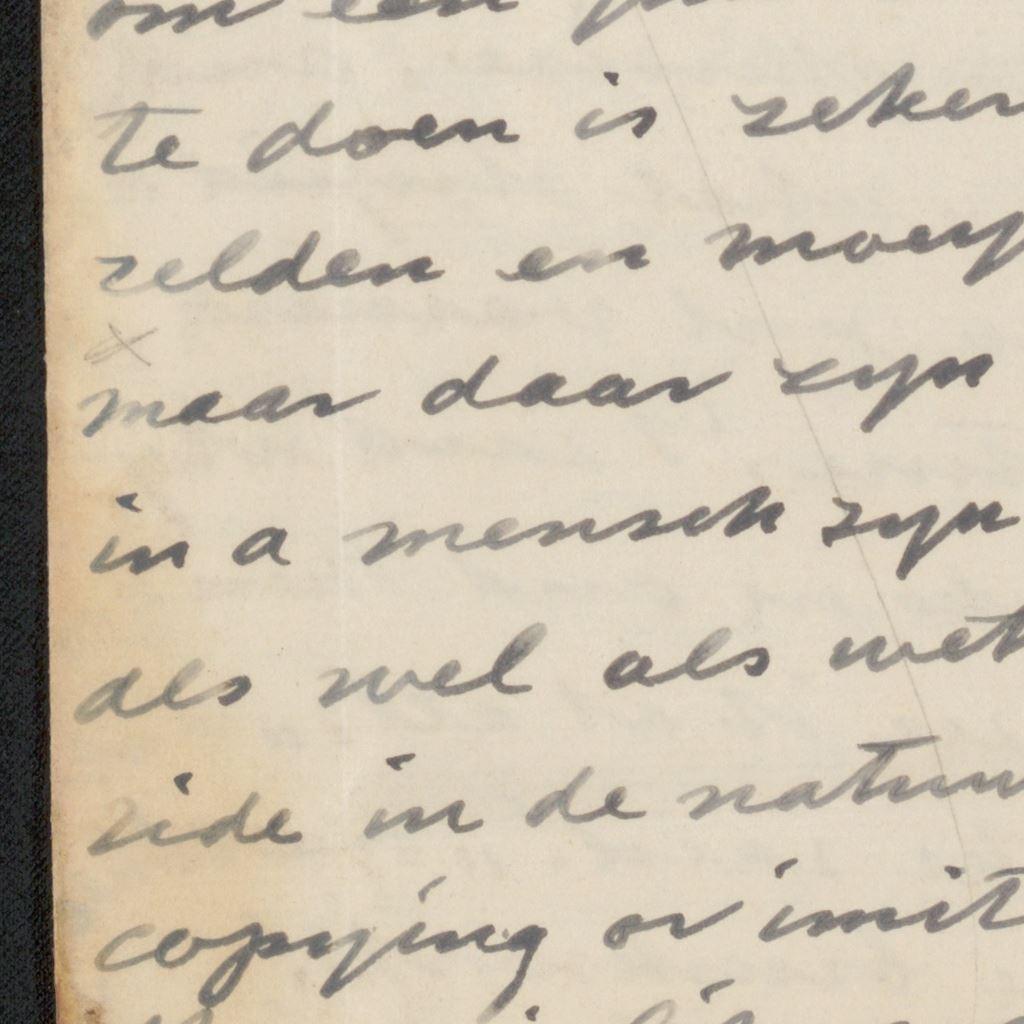 om een
te doen is zeker
zelden en moey
x
maar daar zyn
in a mensch zyn
als wel als wet
zide in de natuur
copying or imit